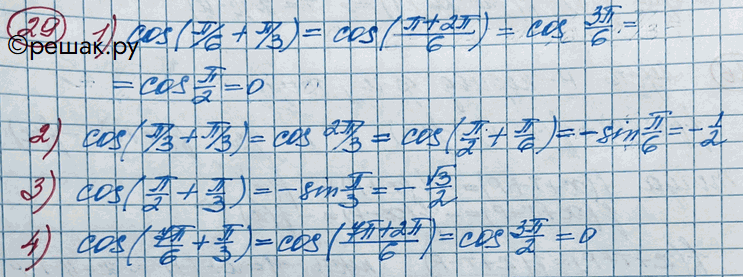 29 1) cos(π/6 + π/3) = cos(π+2π/6) = cos 3π/6 =
©решак.ру
= cos π/2 = 0
2) cos(π/3 + π/3) = cos 2π/3 = cos(π/2 + π/6) = -sin π/6 = -1/2
3) cos(π/2 + π/3) = -sin π/3 = -√3/2
4) cos(7π/6 + π/3) = cos(7π+2π/6) = cos 3π/2 = 0